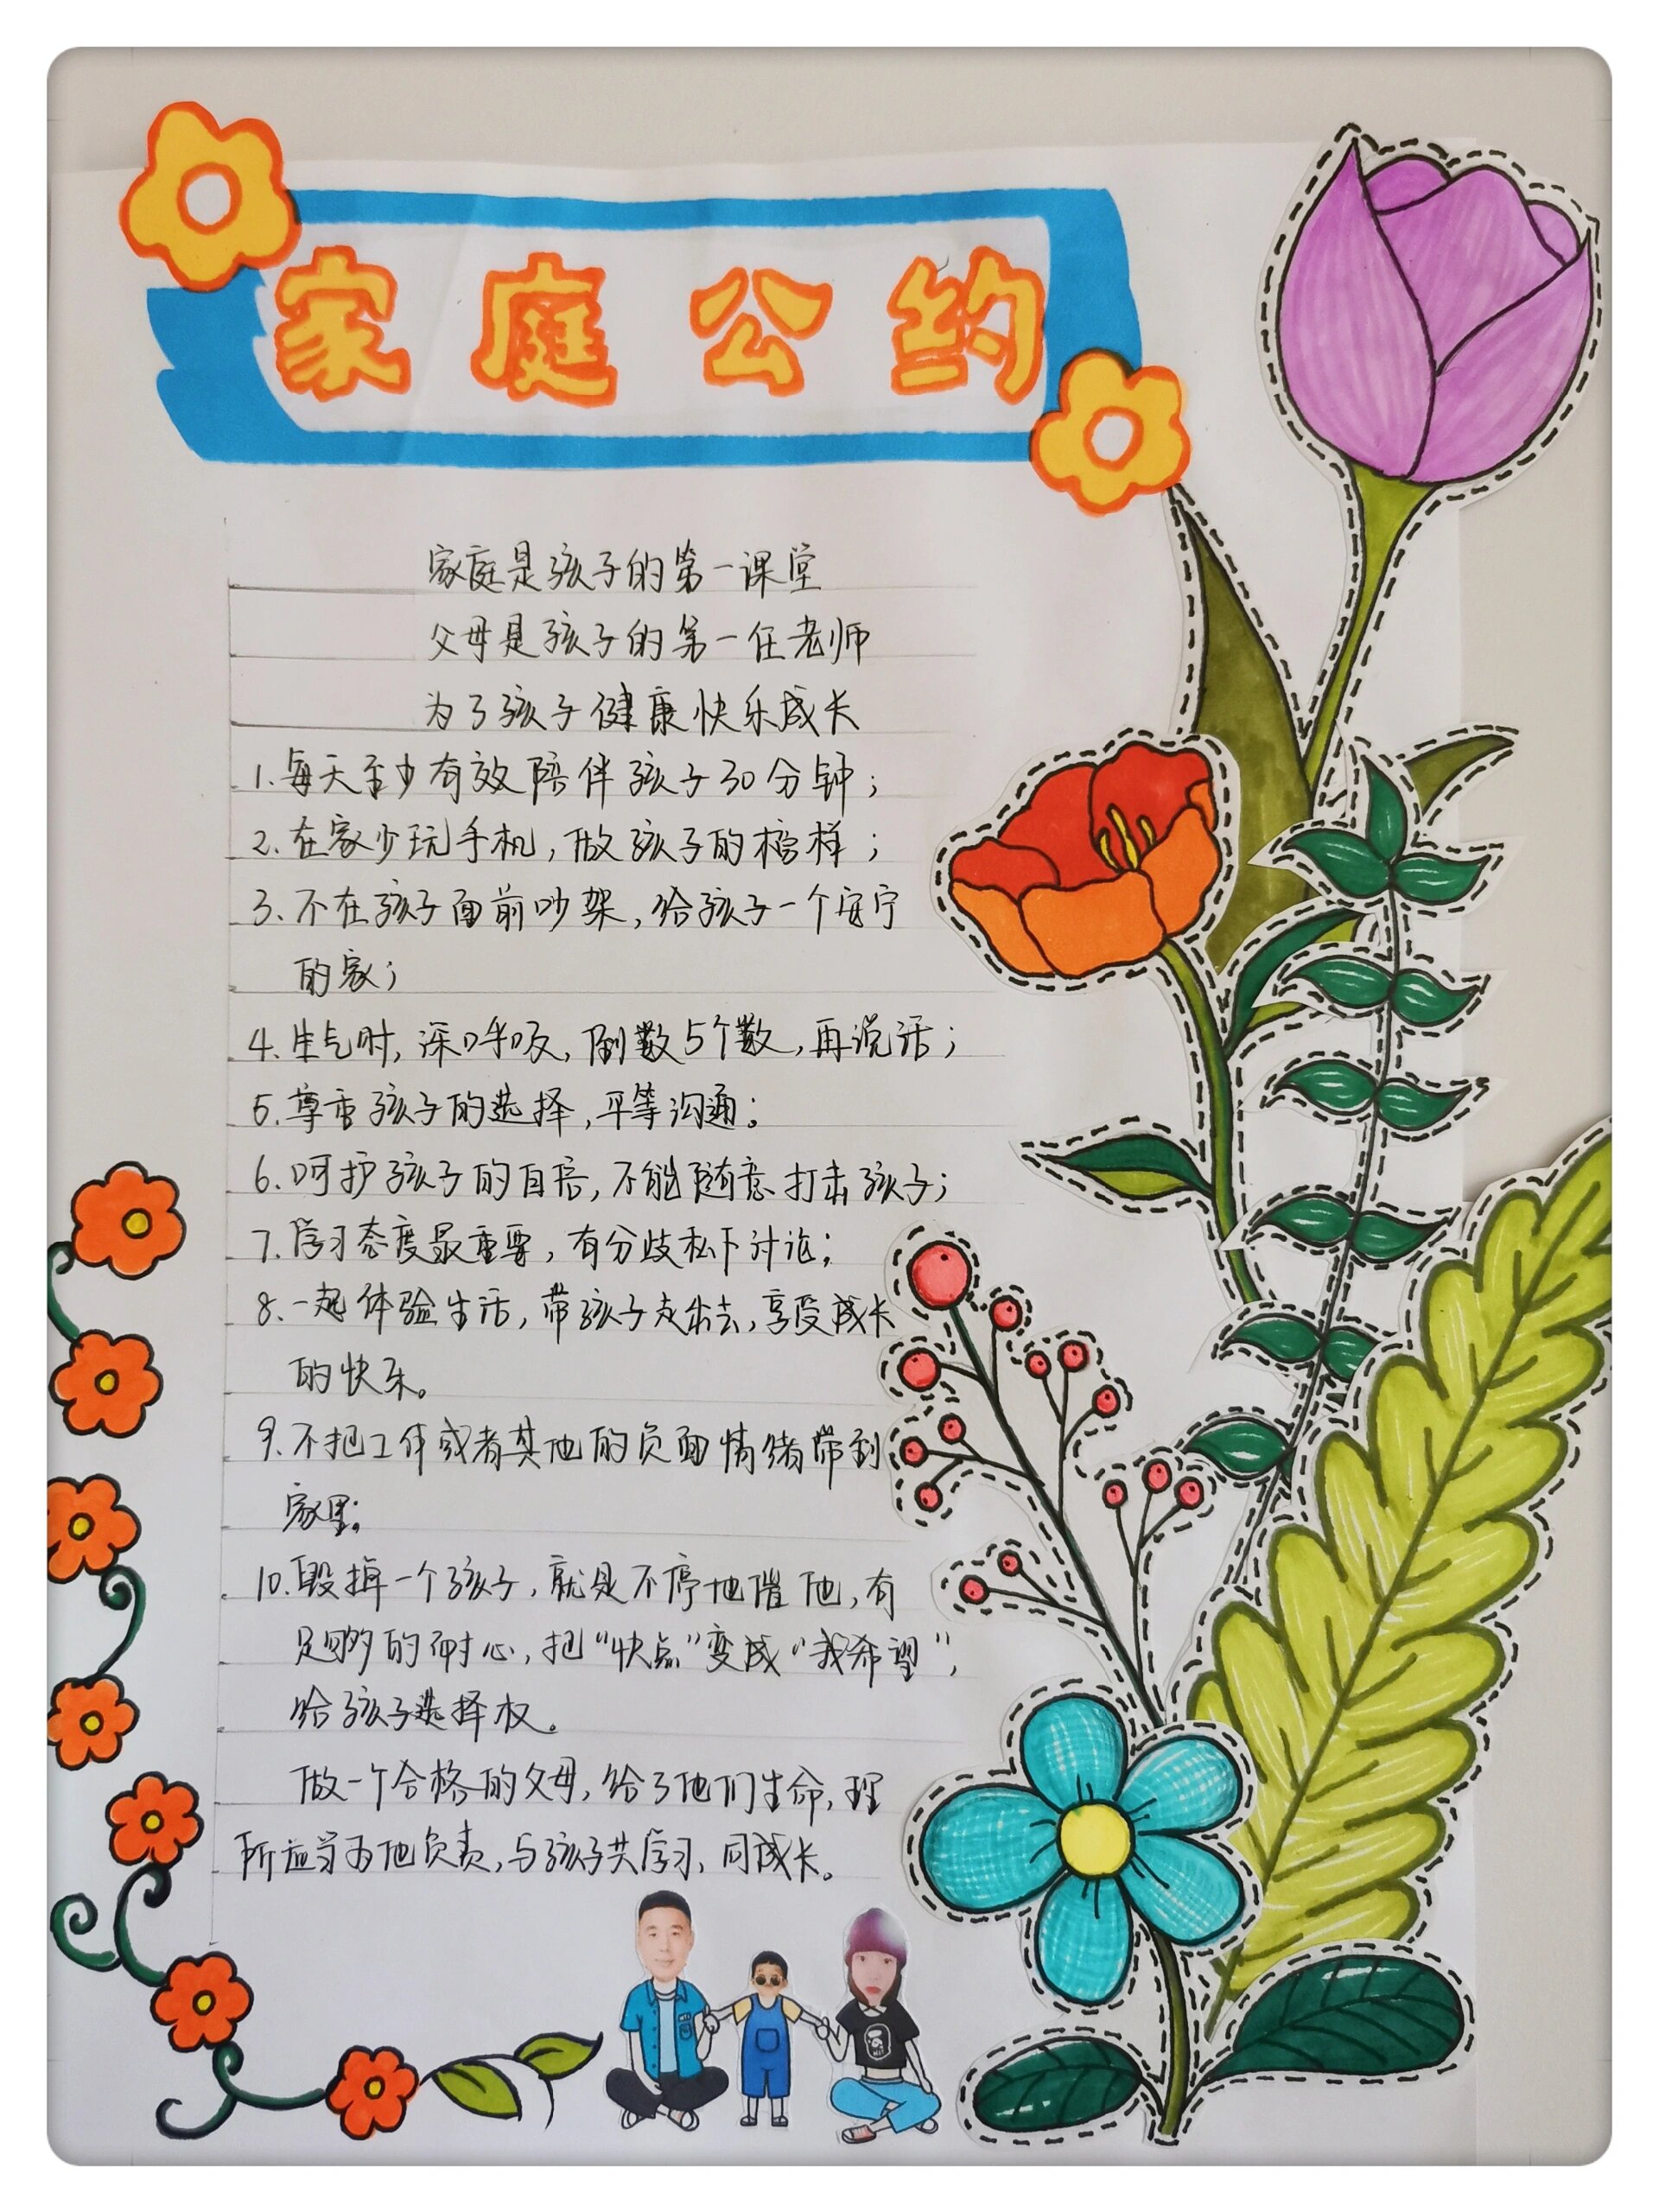 家庭公约
家庭是孩子的第一课堂
父母是孩子的第一任老师
为了孩子健康快乐成长
1.每天至少有效陪伴孩子30分钟；
2.在家少玩手机，做孩子的榜样；
3.不在孩子面前吵架，给孩子一个安宁
的家；
4.生气时，深呼吸，倒数5个数，再说话；
5.尊重孩子的选择，平等沟通。
6.呵护孩子的自信，不能随意打击孩子；
7.学习态度最重要，有分歧私下讨论；
8.一起体验生活，带孩子走出去，享受成长
的快乐。
9.不把工作或者其他的负面情绪带到
家里；
10.毁掉一个孩子，就是不停地催他，有
足够的耐心，把“快点”变成“我希望”，
给孩子选择权。
做一个合格的父母，给了他们生命，理
所应当为他负责，与孩子共学习，同成长。